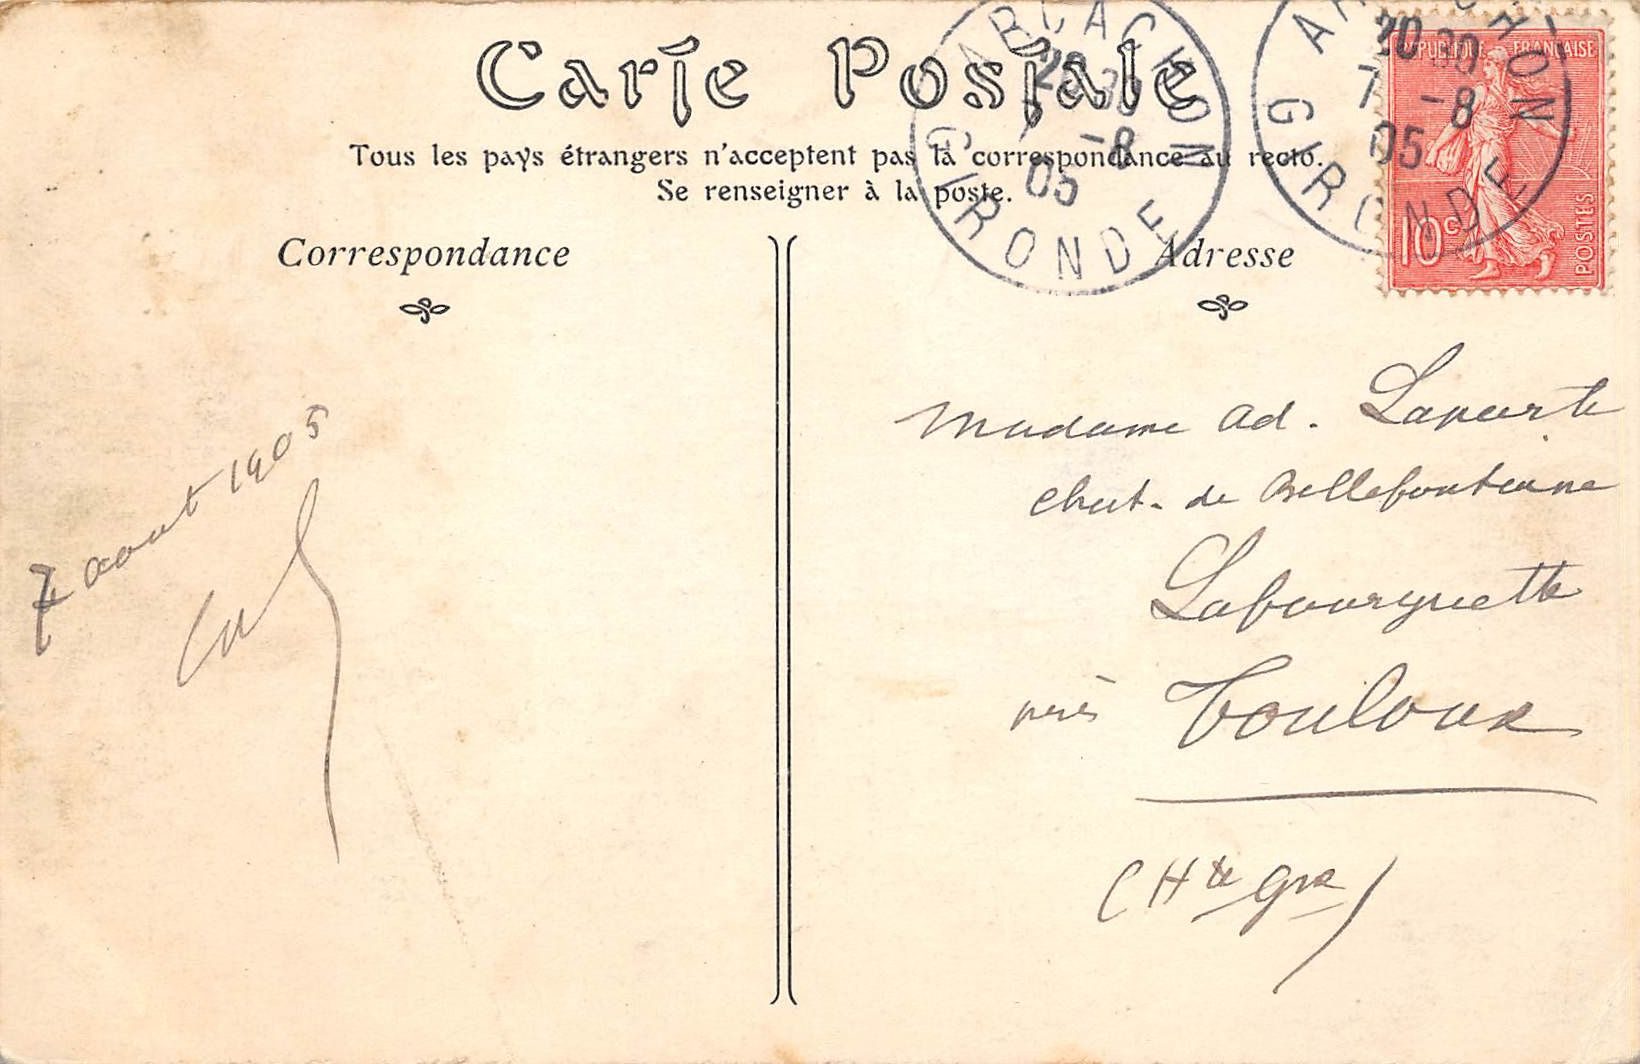 Carte Postale
Tous les pays étrangers n'acceptent pas la correspondance au recto.
Se renseigner à la poste.
Correspondance
Adresse
ARCACHON
20 30
7 -8
05
GIRONDE
ARCACHON
20 30
7 -8
05
GIRONDE
REPUBLIQUE FRANÇAISE
10c
POSTES
7 aout 1905
Madame Ad. Laporte
Chat. de Bellefontaine
Lafourguette
près Toulouse
(Hte Gne)